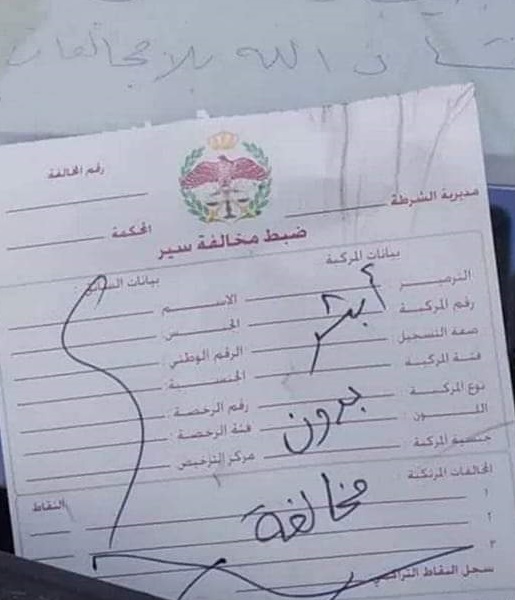 ان شاء الله بلا مخالفات
رقم المخالفة
مديرية الشرطة
المحكمة
ضبط مخالفة سير
بيانات المركبة
بيانات السائق
الترميز
الاسم
رقم المركبة
الجنس
صفة التسجيل
الرقم الوطني
فئة المركبة
الجنسية
نوع المركبة
رقم الرخصة
اللون
فئة الرخصة
جنسية المركبة
مركز الترخيص
أبشر
بدون
مخالفة
المخالفات المرتكبة
النقاط
١
٢
٣
سجل النقاط